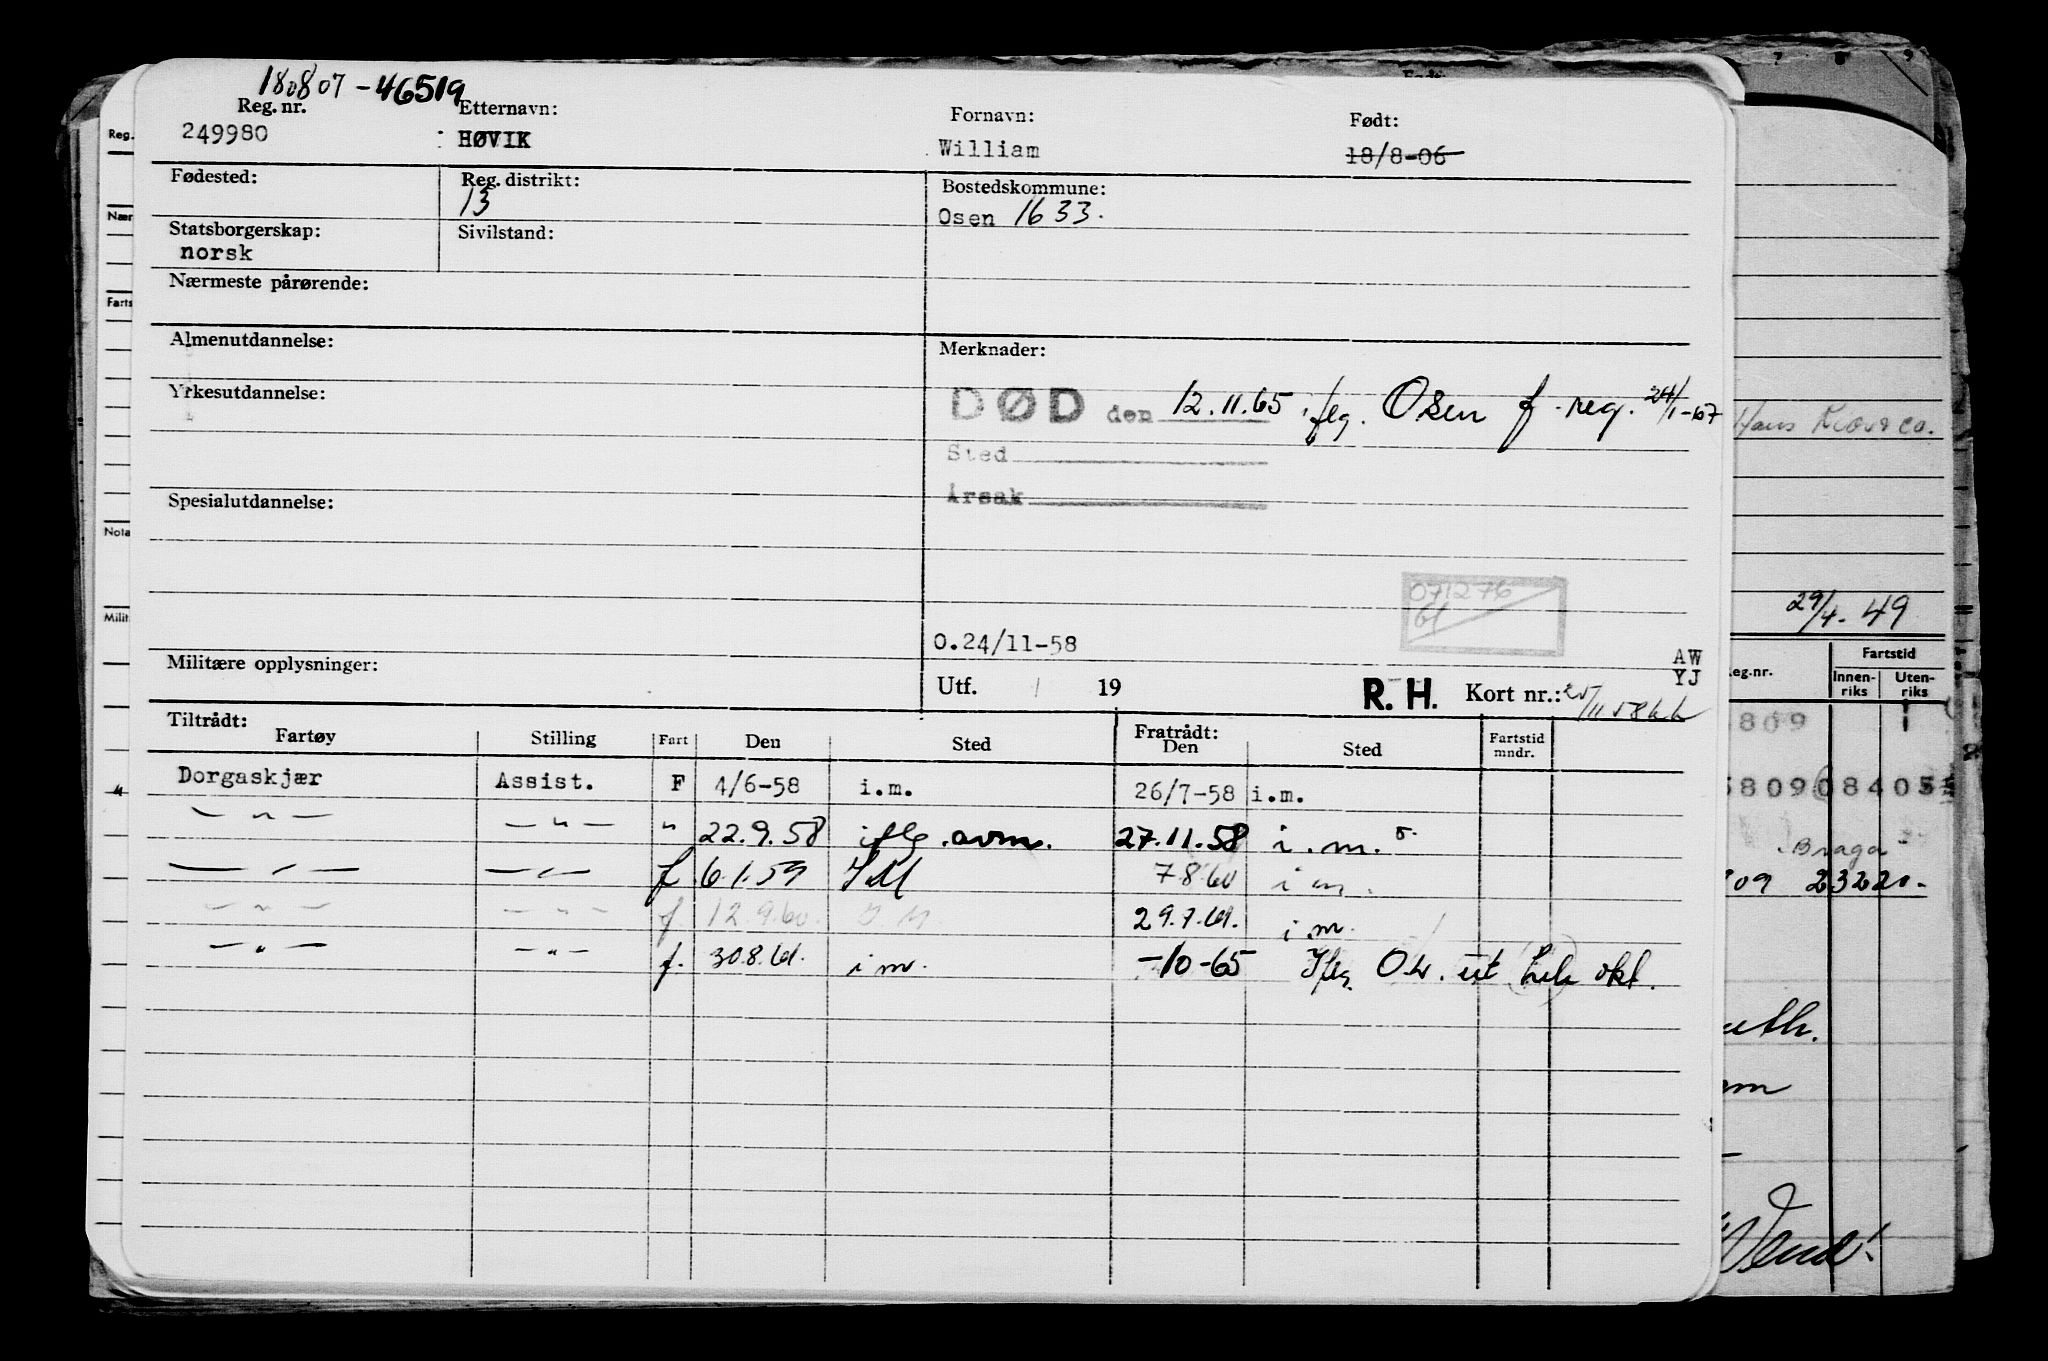 180807-46519
Reg. nr. Etternavn: Fornavn: Født:
249980 HØVIK William 18/8-06
Fødested: Reg. distrikt: Bostedskommune:
13 Osen 1633.
Statsborgerskap: Sivilstand:
norsk
Nærmeste pårørende:
Almenutdannelse: Merknader:
Yrkesutdannelse:
DØD den 12.11.65 flg. Osen f. reg. 24/1-67
Sted
Årsak
Spesialutdannelse:
071276
61
O.24/11-58
Militære opplysninger: AW
Utf. / 19 R. H. Kort nr.: YJ
Tiltrådt: Fratrådt:
Fartøy Stilling Fart Den Sted Den Sted Fartstid mndr.
Dorgaskjær Assist. F 4/6-58 i.m. 26/7-58 i.m.
— " — — " — " 22.9.58 iflg. avm. 27.11.58 i.m.
— " — — " — f 6.1.59 IM 7.8.60 i m.
— " — — " — f 12.9.60. I M. 29.7.61. i m.
— " — — " — f. 30.8.61. i m. -10-65 Iflg. O.k. ut hele okt.
Reg.
Nær
Farts
Nota
Milit
Hans
29/4-49
eg.nr. Fartstid
Innen-riks Uten-riks
809
5809 08405
Braga
709 23220.